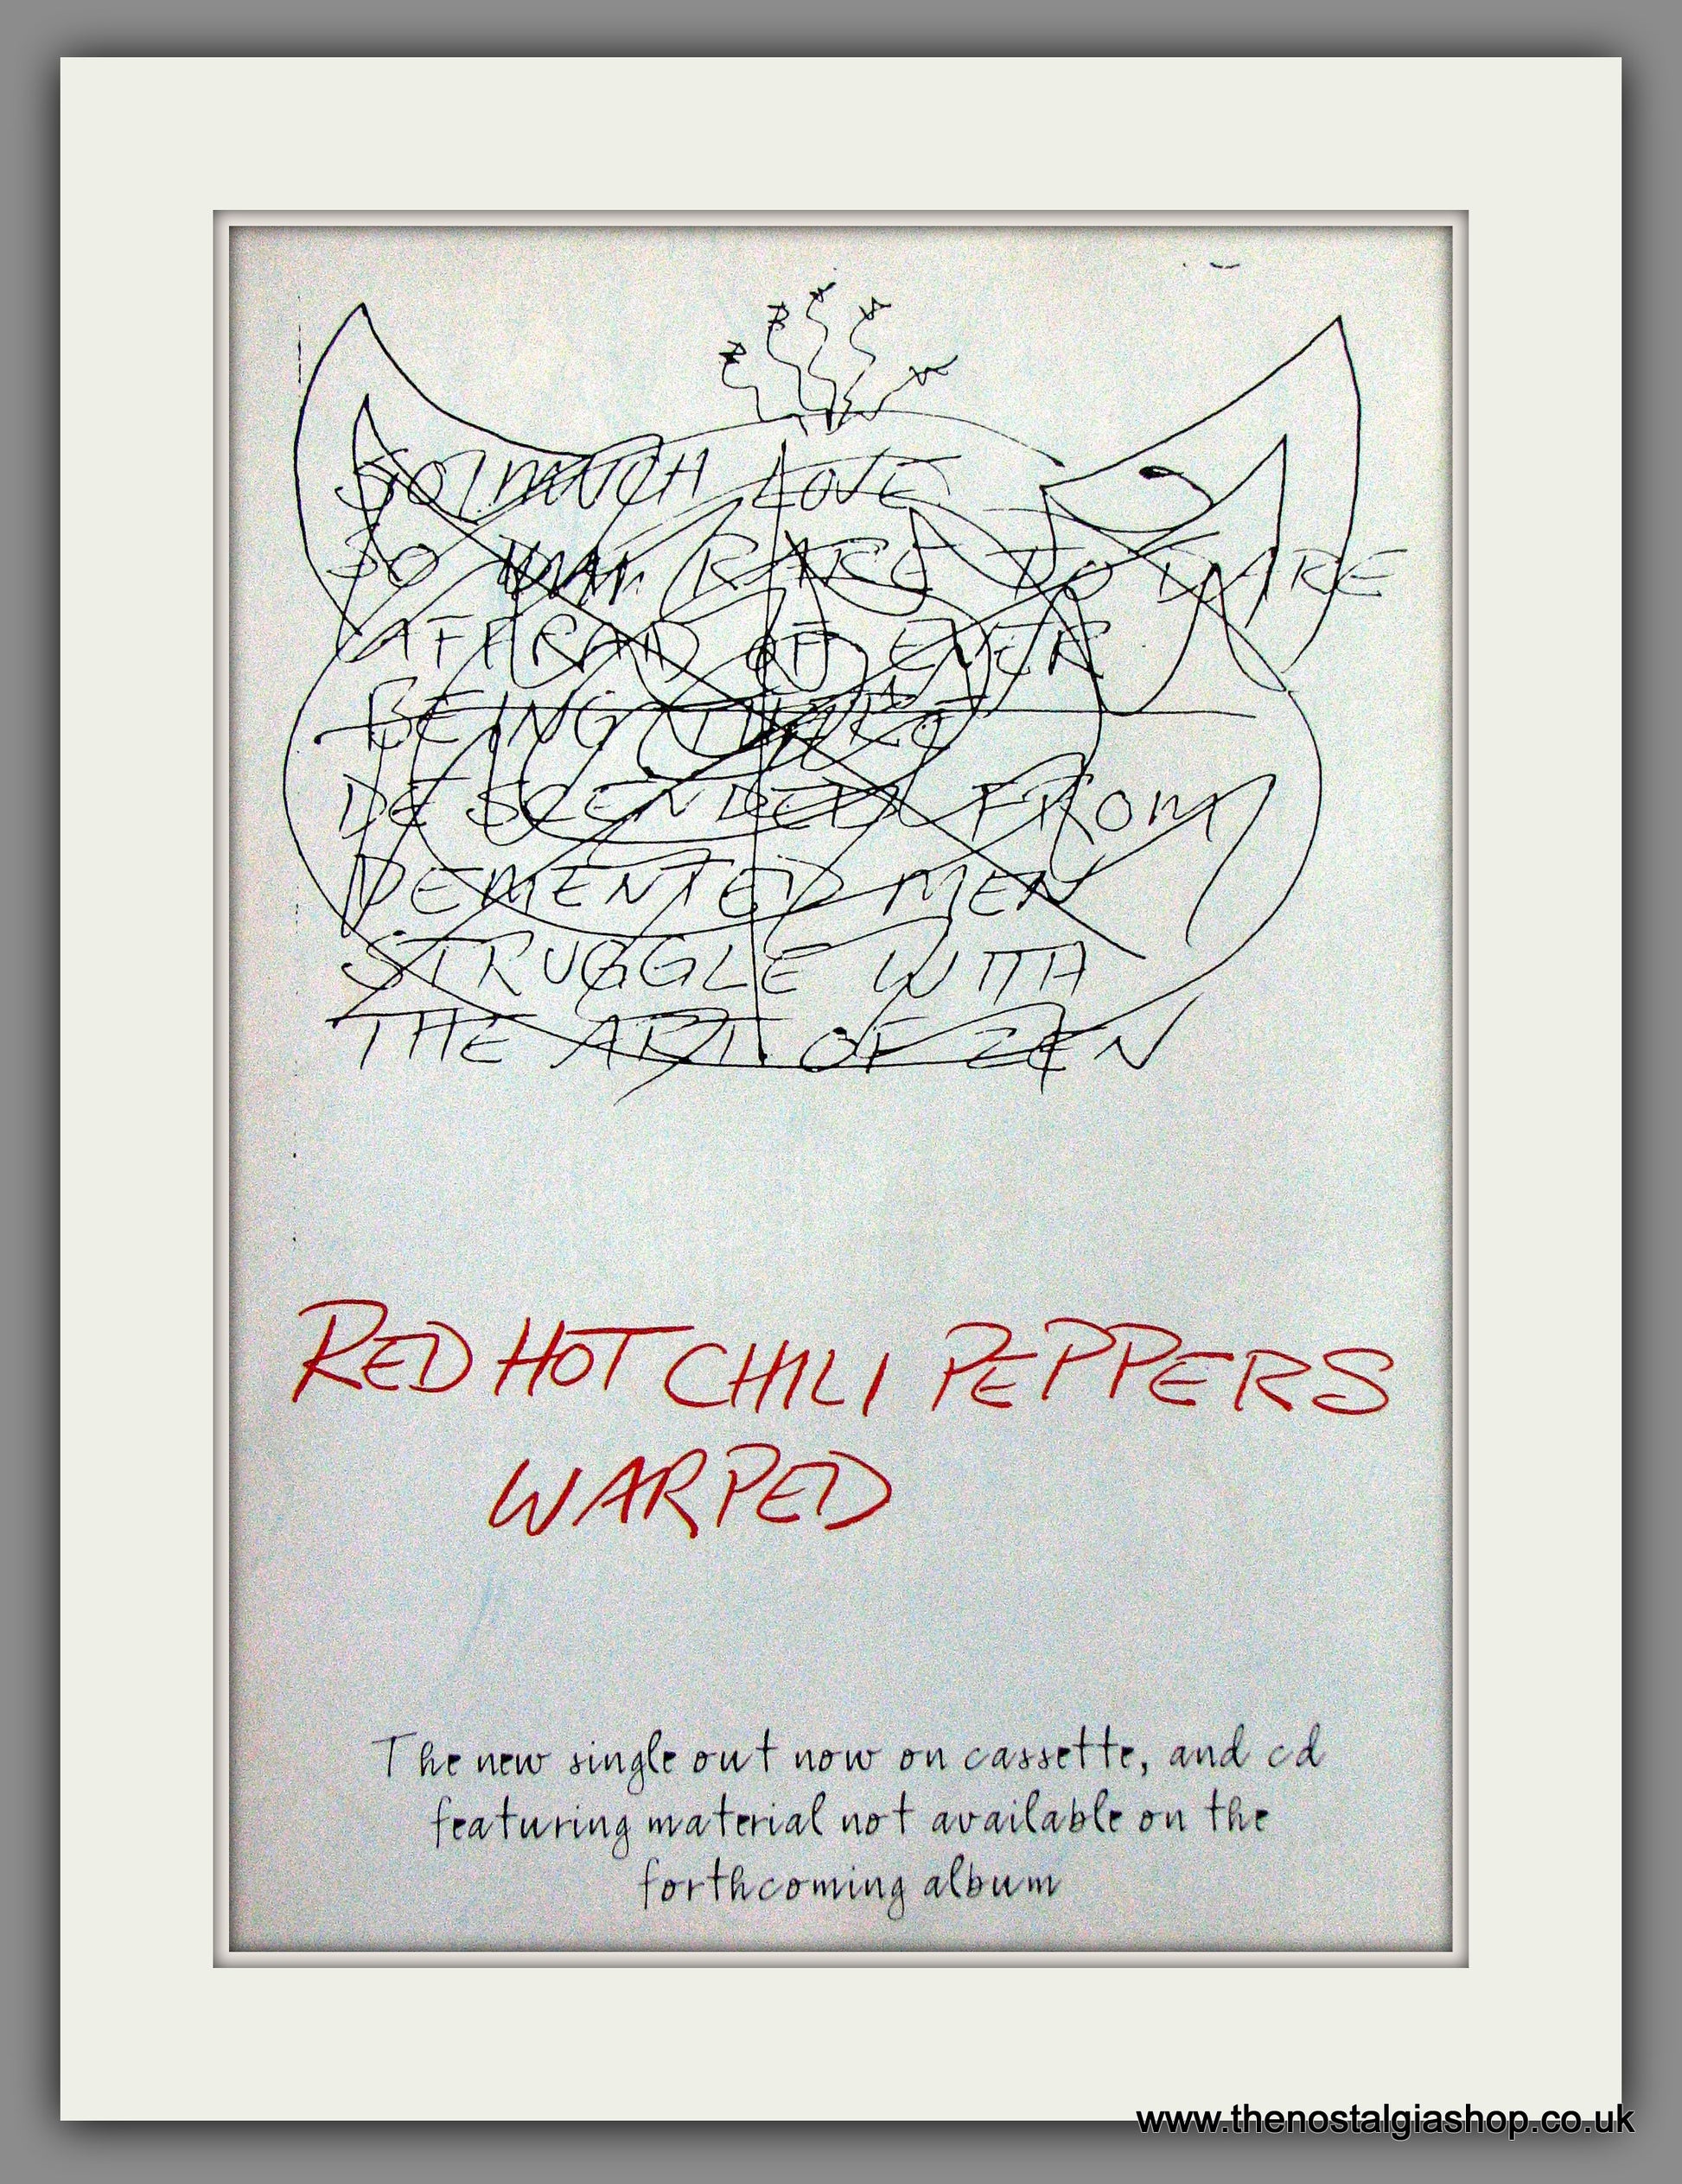 SO MUCH LOVE
SO RARE TO DARE
AFFRAID OF EVER
BEING THERE
DESCENDED FROM
DEMENTED MEN
STRUGGLE WITH
THE ART OF ZEN
RED HOT CHILI PEPPERS
WARPED
The new single out now on cassette, and cd
featuring material not available on the
forthcoming album
www.thenostalgiashop.co.uk